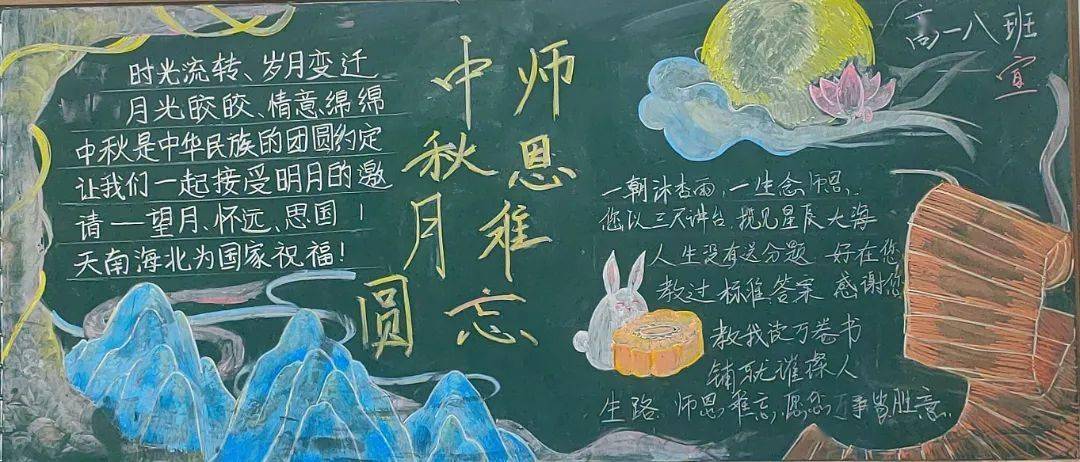 时光流转、岁月变迁
月光皎皎、情意绵绵
中秋是中华民族的团圆约定
让我们一起接受明月的邀
请——望月、怀远、思国！
天南海北为国家祝福！
中秋月圆
师恩难忘
高一八班
宣
一朝沐杏雨,一生念师恩.
您以三尺讲台,揽见星辰大海
人生没有送分题 好在您
教过标准答案 感谢您
教我读万卷书
铺就璀璨人
生路.师恩难忘,愿您万事皆胜意.